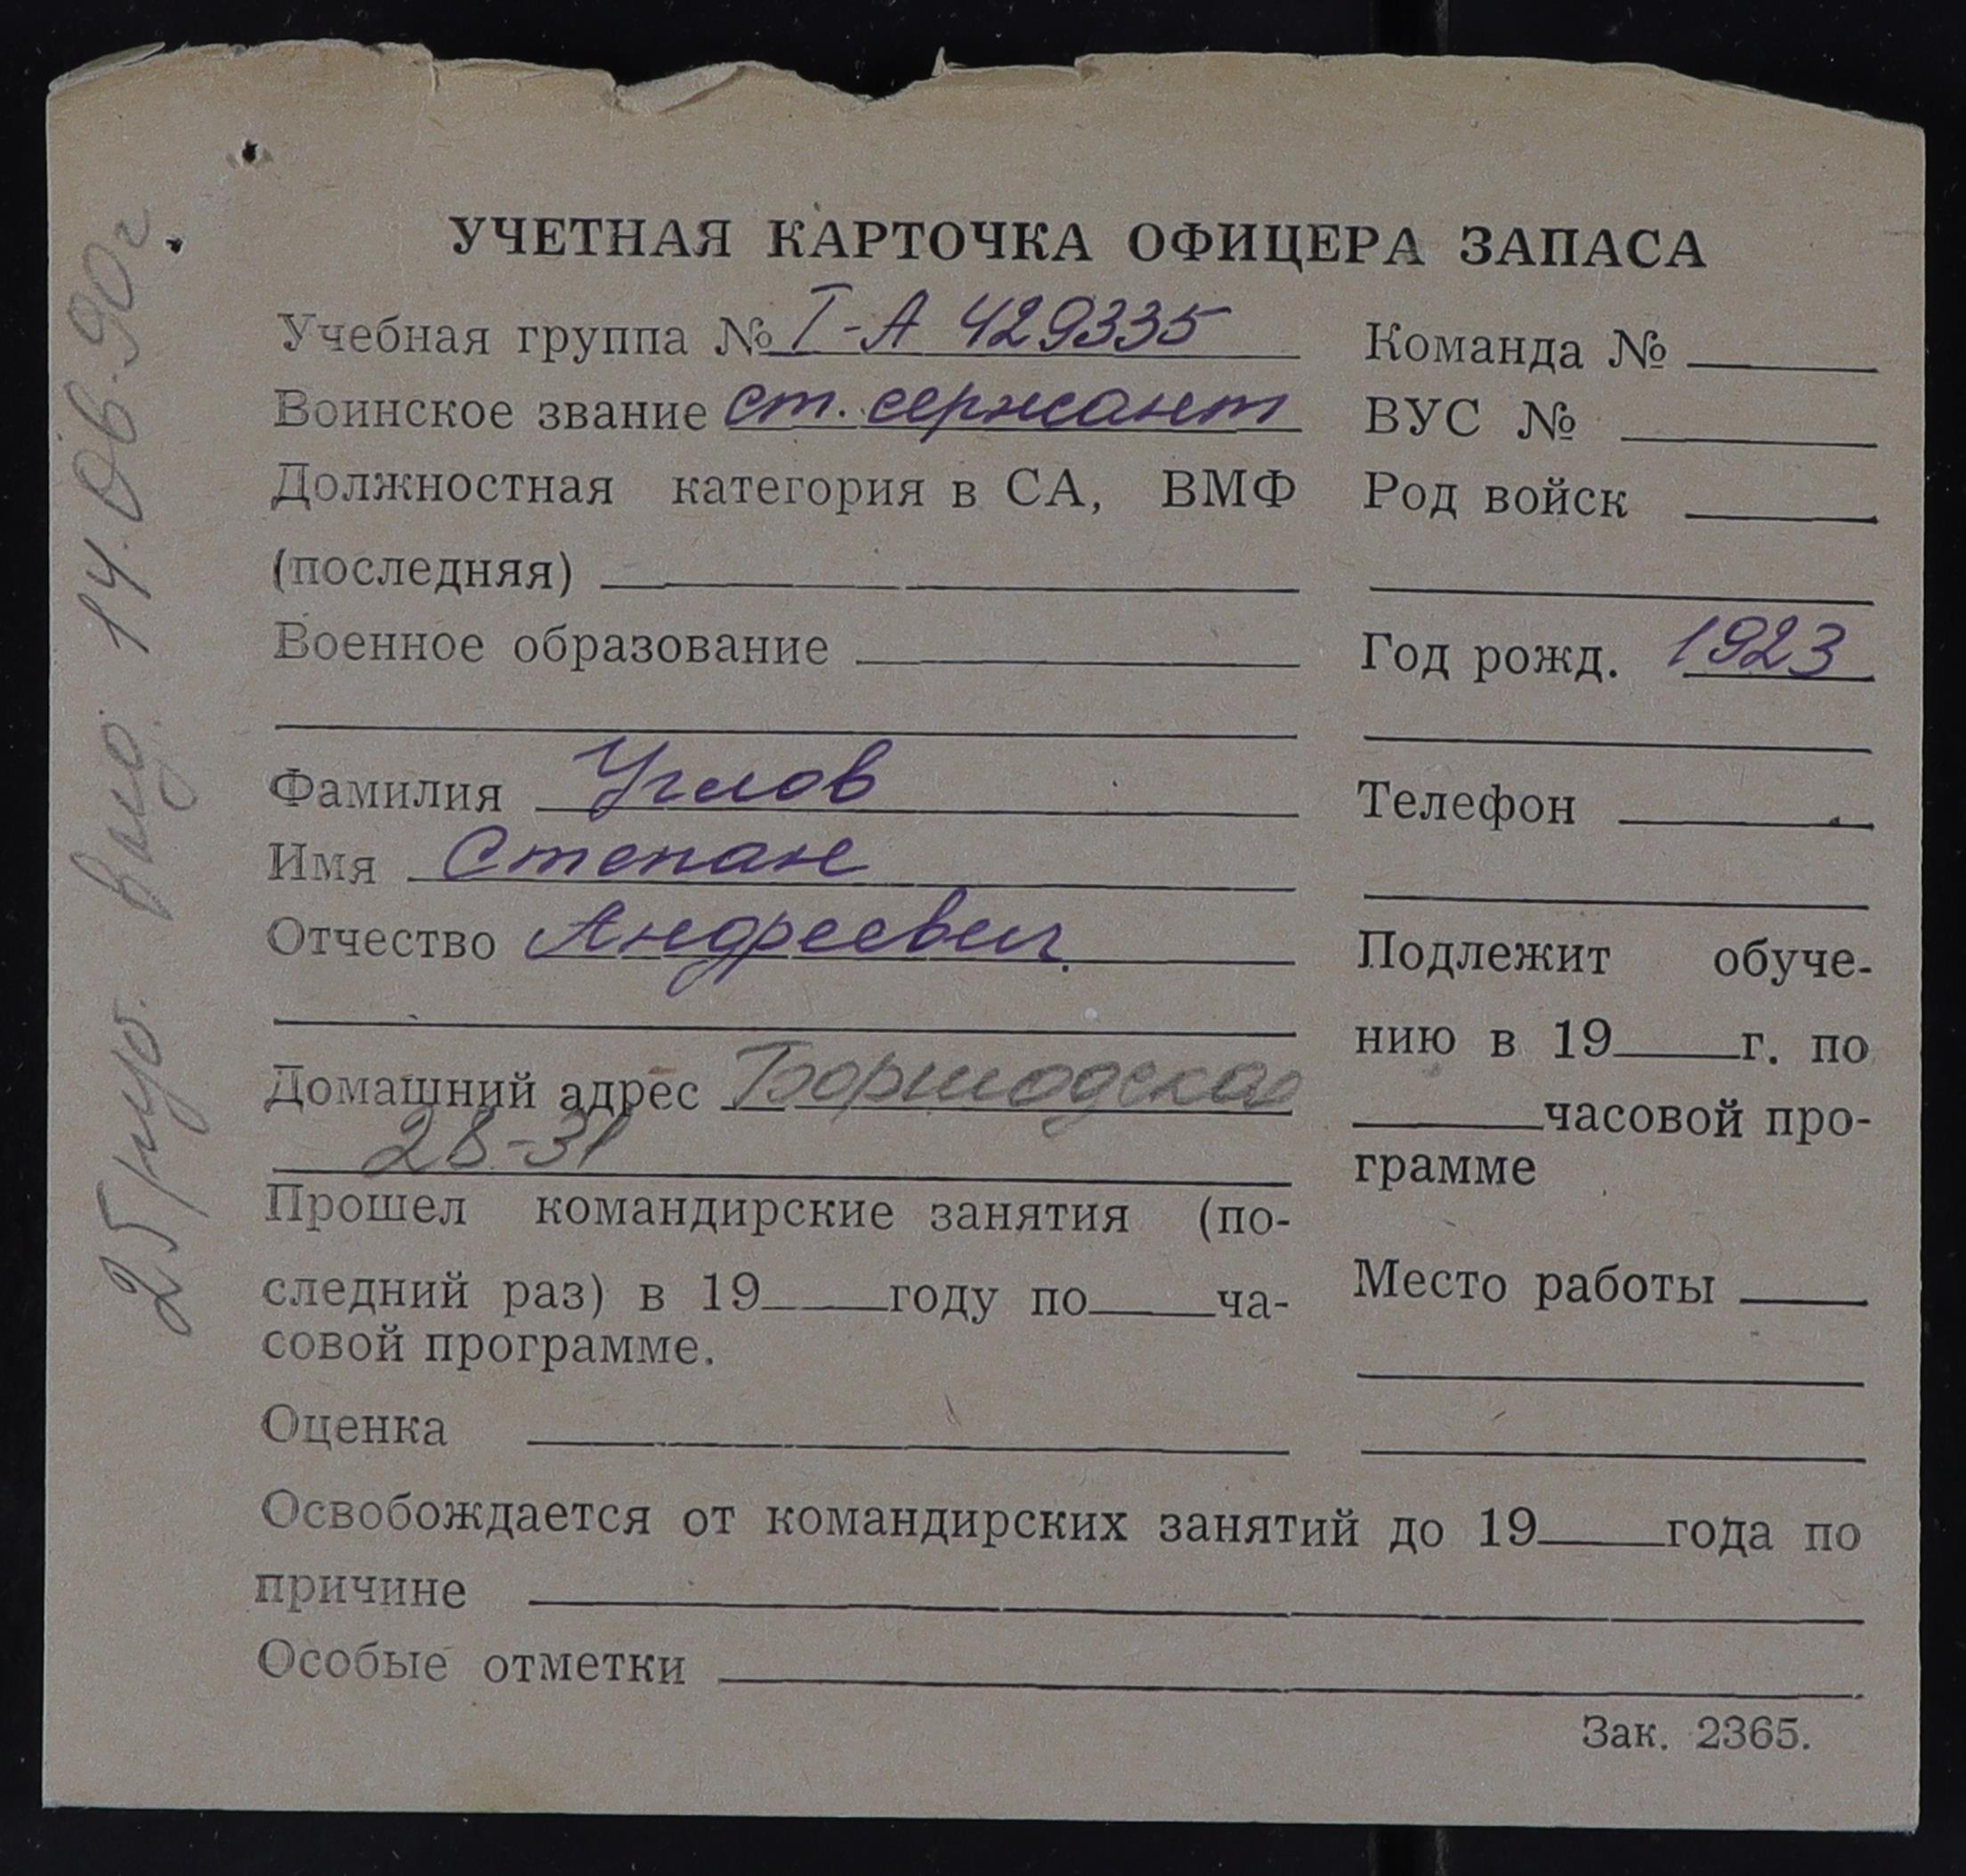 УЧЕТНАЯ КАРТОЧКА ОФИЦЕРА ЗАПАСА
Учебная группа № Т-А 429335
Воинское звание ст. сержант
Должностная категория в СА, ВМФ
(последняя)
Военное образование
Фамилия Углов
Имя Степан
Отчество Андреевич
Домашний адрес Боршодская
28-31
Прошел командирские занятия (по-
следний раз) в 19 году по ча-
совой программе.
Оценка
Команда №
ВУС №
Род войск
Год рожд. 1923
Телефон
Подлежит обуче-
нию в 19 г. по
часовой про-
грамме
Место работы
Освобождается от командирских занятий до 19 года по
причине
Особые отметки
Зак. 2365.
25 руб. выд. 14.06.90г